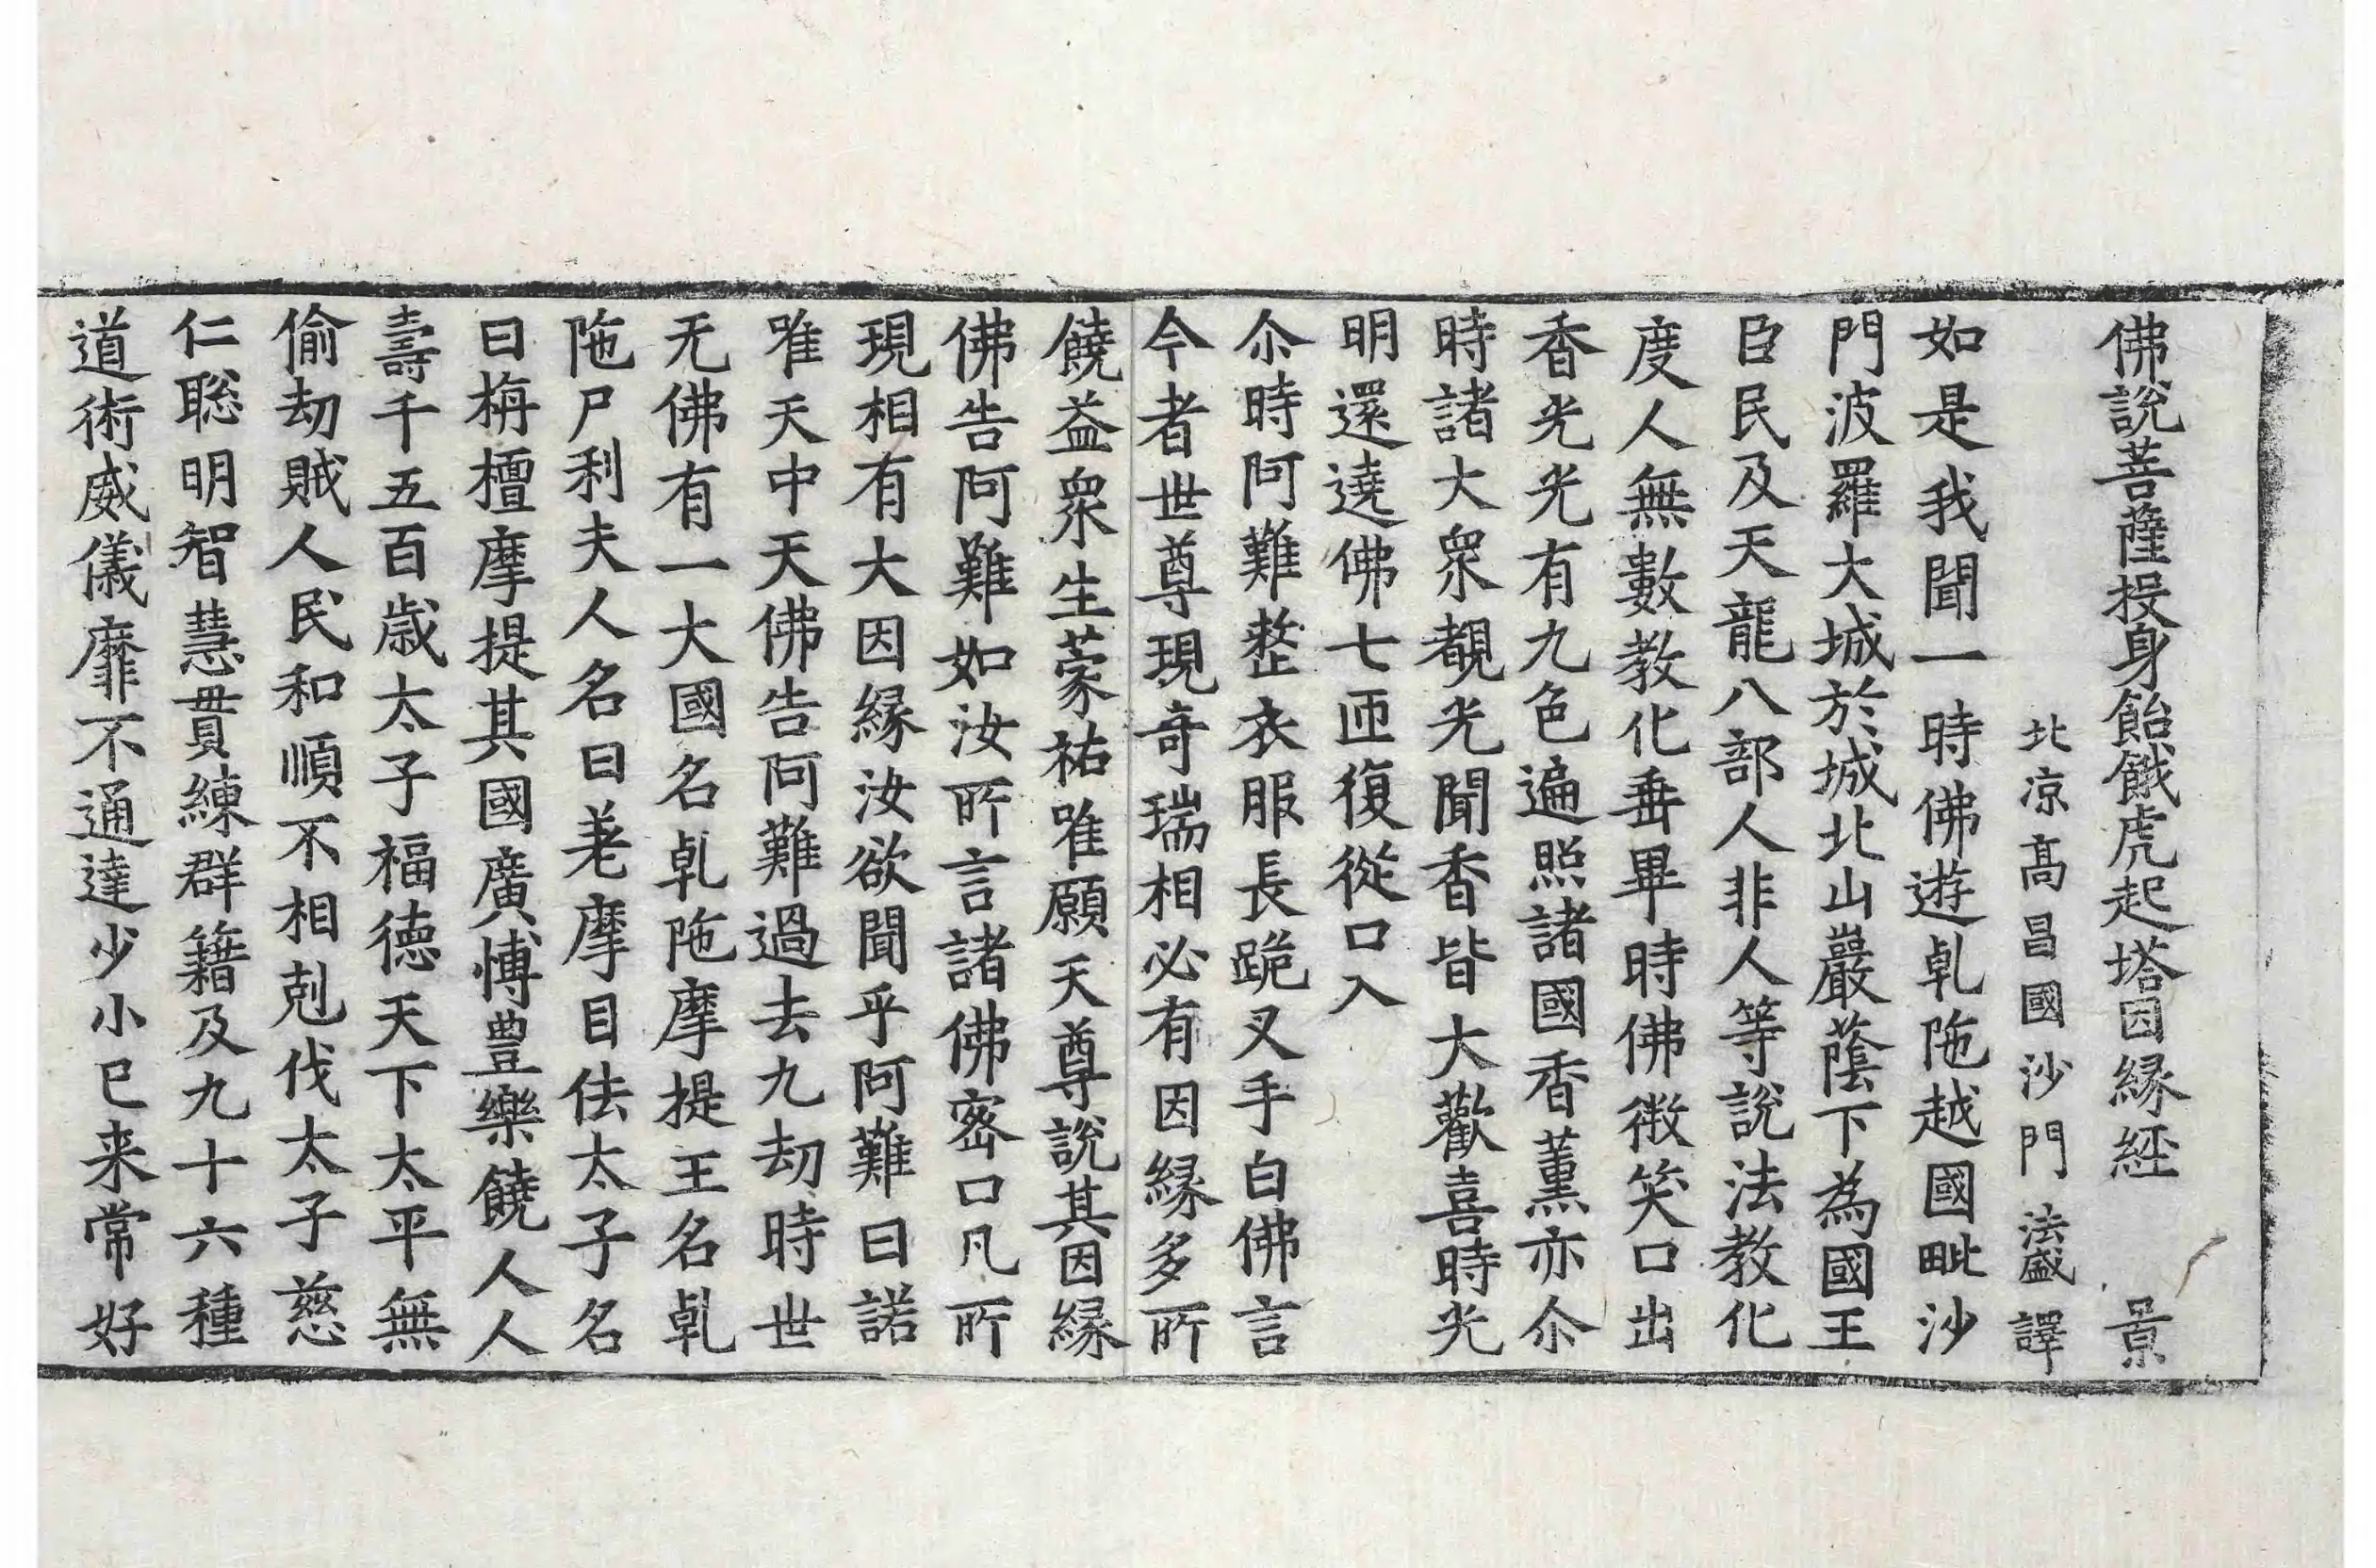 佛說菩薩投身飴餓虎起塔因緣經 景
北凉高昌國沙門法盛譯
如是我聞一時佛遊乹陁越國毗沙
門波羅大城於城北山巖蔭下為國王
臣民及天龍八部人非人等說法教化
度人無數教化垂畢時佛微笑口出
香光光有九色遍照諸國香薰亦尒
時諸大衆覩光聞香皆大歡喜時光
明還遶佛七匝復從口入
尒時阿難整衣服長跪叉手白佛言
今者世尊現奇瑞相必有因緣多所
饒益衆生蒙祐唯願天尊說其因緣
佛告阿難如汝所言諸佛密口凡所
現相有大因緣汝欲聞乎阿難曰諾
唯天中天佛告阿難過去九劫時世
无佛有一大國名乹陁摩提王名乹
陁尸利夫人名曰差摩目佉太子名
曰栴檀摩提其國廣博豊樂饒人人
壽千五百歲太子福德天下太平無
偷劫賊人民和順不相剋伐太子慈
仁聡明智慧貫練群籍及九十六種
道術威儀靡不通達少小已来常好